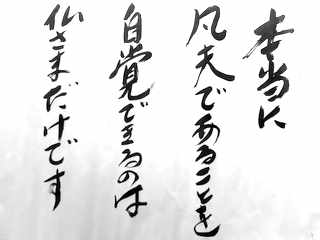 本当に
凡夫であることを
自覚できるのは
仏さまだけです